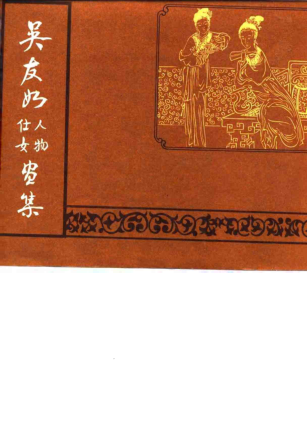 吴友如
人物
仕女
画集